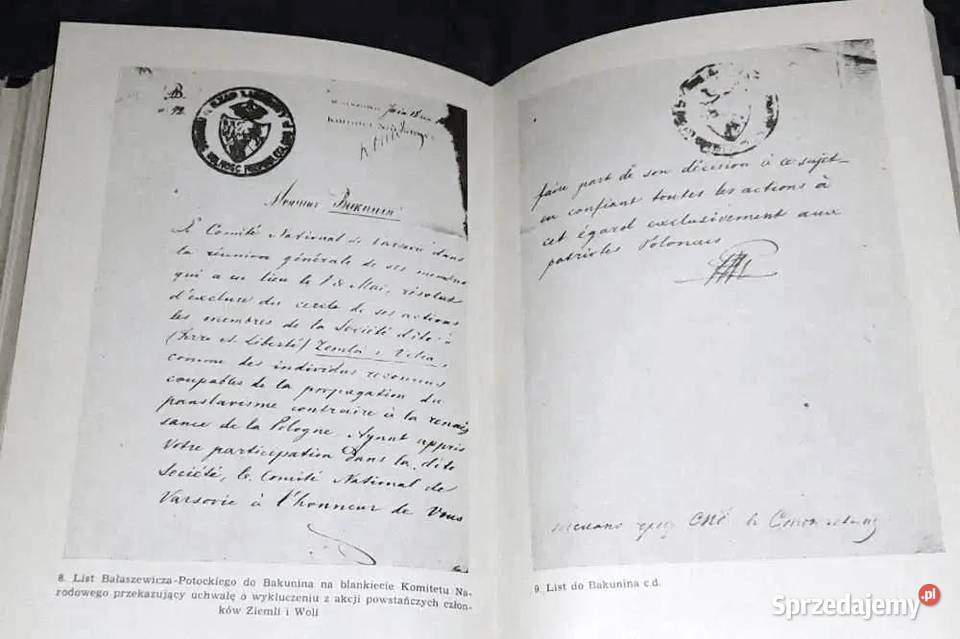 Monsieur Bakunin
Le Comité National de Varsovie dans
la réunion générale de ses membres
qui a eu lieu le 1 de Mai, résolut
d'exclure du cercle de ses actions
les membres de la Société dite:
(Terre et Liberté) Zemla i Volia,
comme des individus reconnus
coupables de la propagation du
panslavisme contraire à la renais
sance de la Pologne Ayant appris
Votre participation dans la dite
Société, le Comité National de
Varsovie à l'honneur de Vous
8. List Bałaszewicza-Potockiego do Bakunina na blankiecie Komitetu Na-
rodowego przekazujący uchwałę o wykluczeniu z akcji powstańczych człon-
ków Ziemli i Woli
faire part de son décision à ce sujet
en confiant toutes les actions à
cet égard exclusivement aux
patriotes Polonais
9. List do Bakunina c.d.
Sprzedajemy.pl